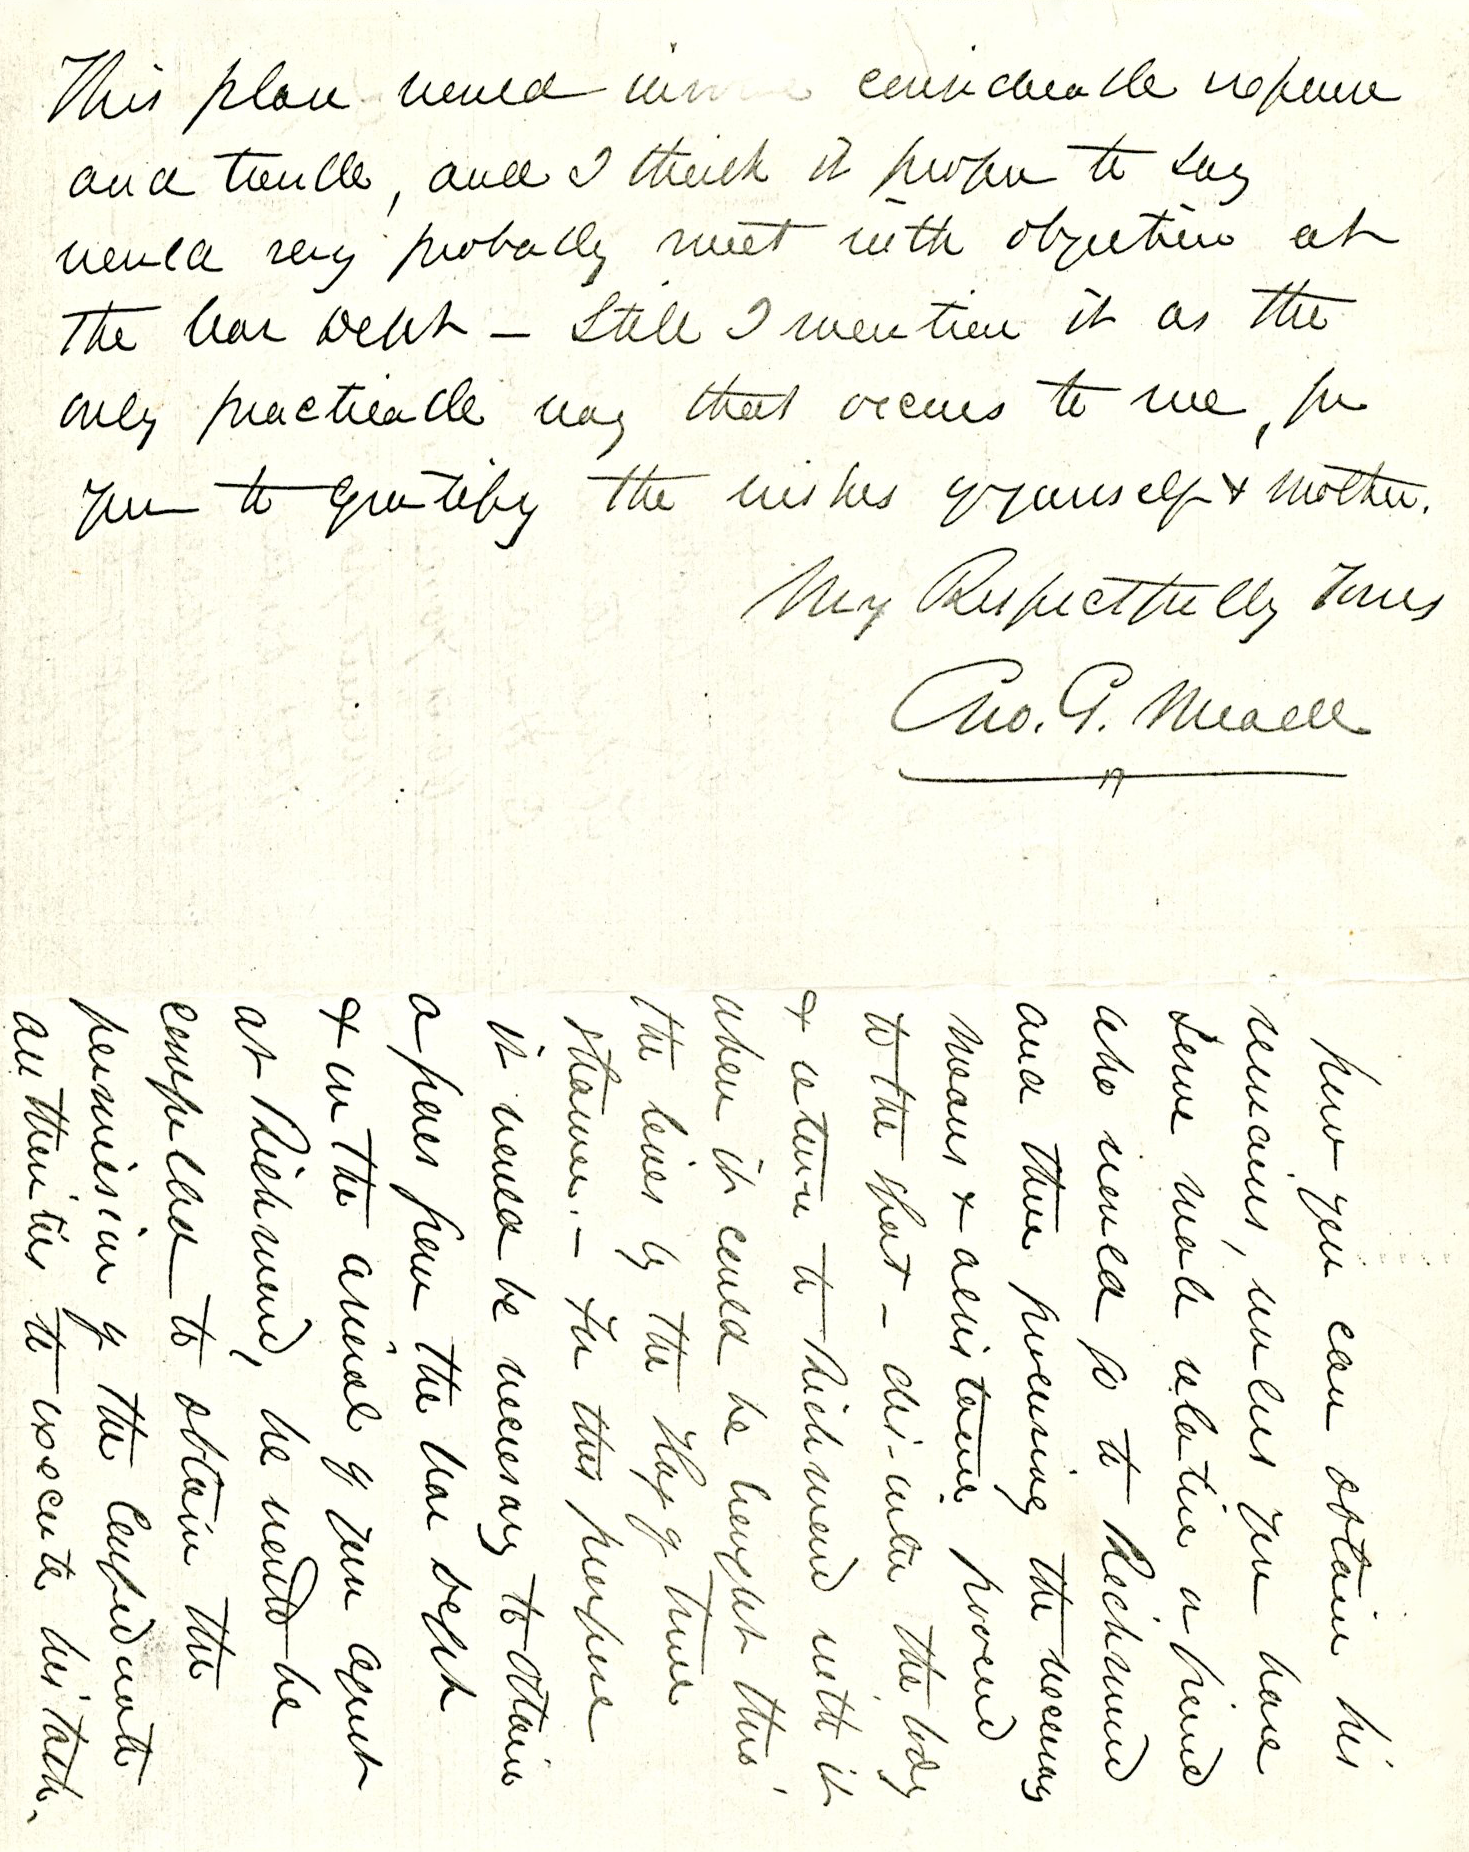 This plan would involve considerable expense
and trouble, and I think it proper to say
would very probably meet with objection at
the War Dept – Still I mention it as the
only practicable way that occurs to me, for
you to gratify the wishes of yourself & mother.
Very Respectfully Yours
Geo. G. Meade
how you can obtain his
remains, unless you have
some male relative or friend
who would go to Richmond
and there procuring the necessary
means & assistance proceed
to the spot – dis-inter the body
& return to Richmond with it
when it could be brought thro'
the lines by the Flag of Truce
steamer. – For this purpose
it would be necessary to obtain
a pass from the War Dept
& on the arrival of your agent
at Richmond, he would be
compelled to obtain the
permission of the Confederate
authorities to execute his task.